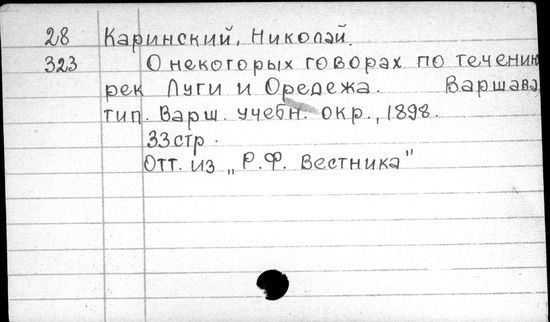 28 Каринский, Николай.
323 О некоторых говорах по течению
рек Луги и Оредежа. Варшава,
тип. Варш. учебн. окр., 1898.
33 стр.
Отт. из „Р.Ф. Вестника"